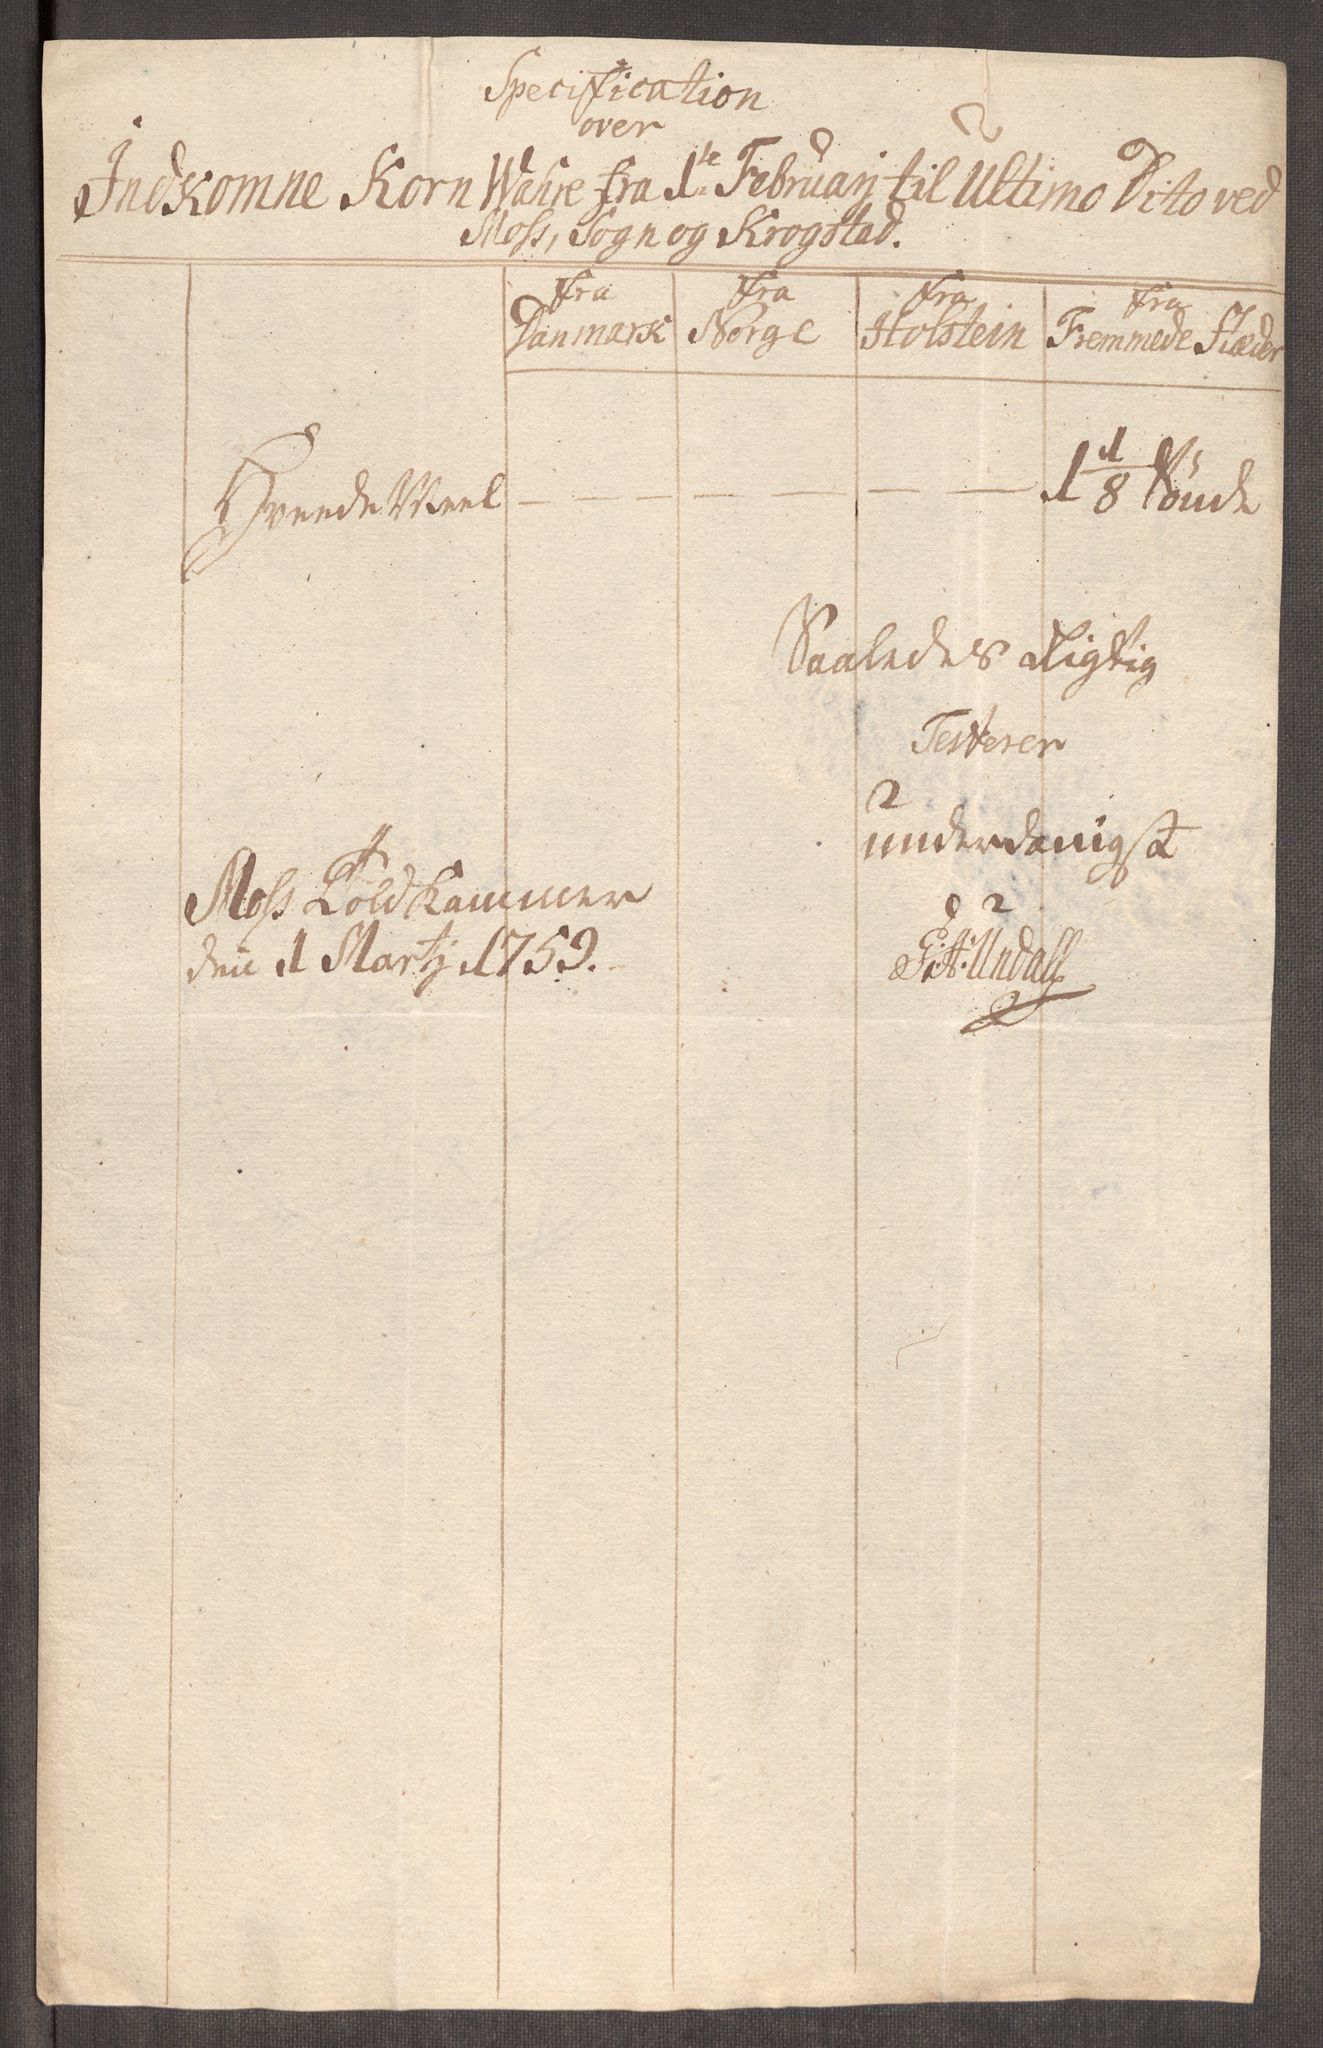 Specification
over
Indkomne Korn Wahre fra 1te Februarij til Ultimo Dito ved
Moss, Sogn og Krogstad.
fra Danmark fra Norge fra Holstein fra Fremmede Stæder
Hveede Meel — — — — — — 1 1/8 Tönde
Saaledes Rigtig
Testerer
underdanigst
Moss Told Kammer
den 1 Martij 1759.
Undall